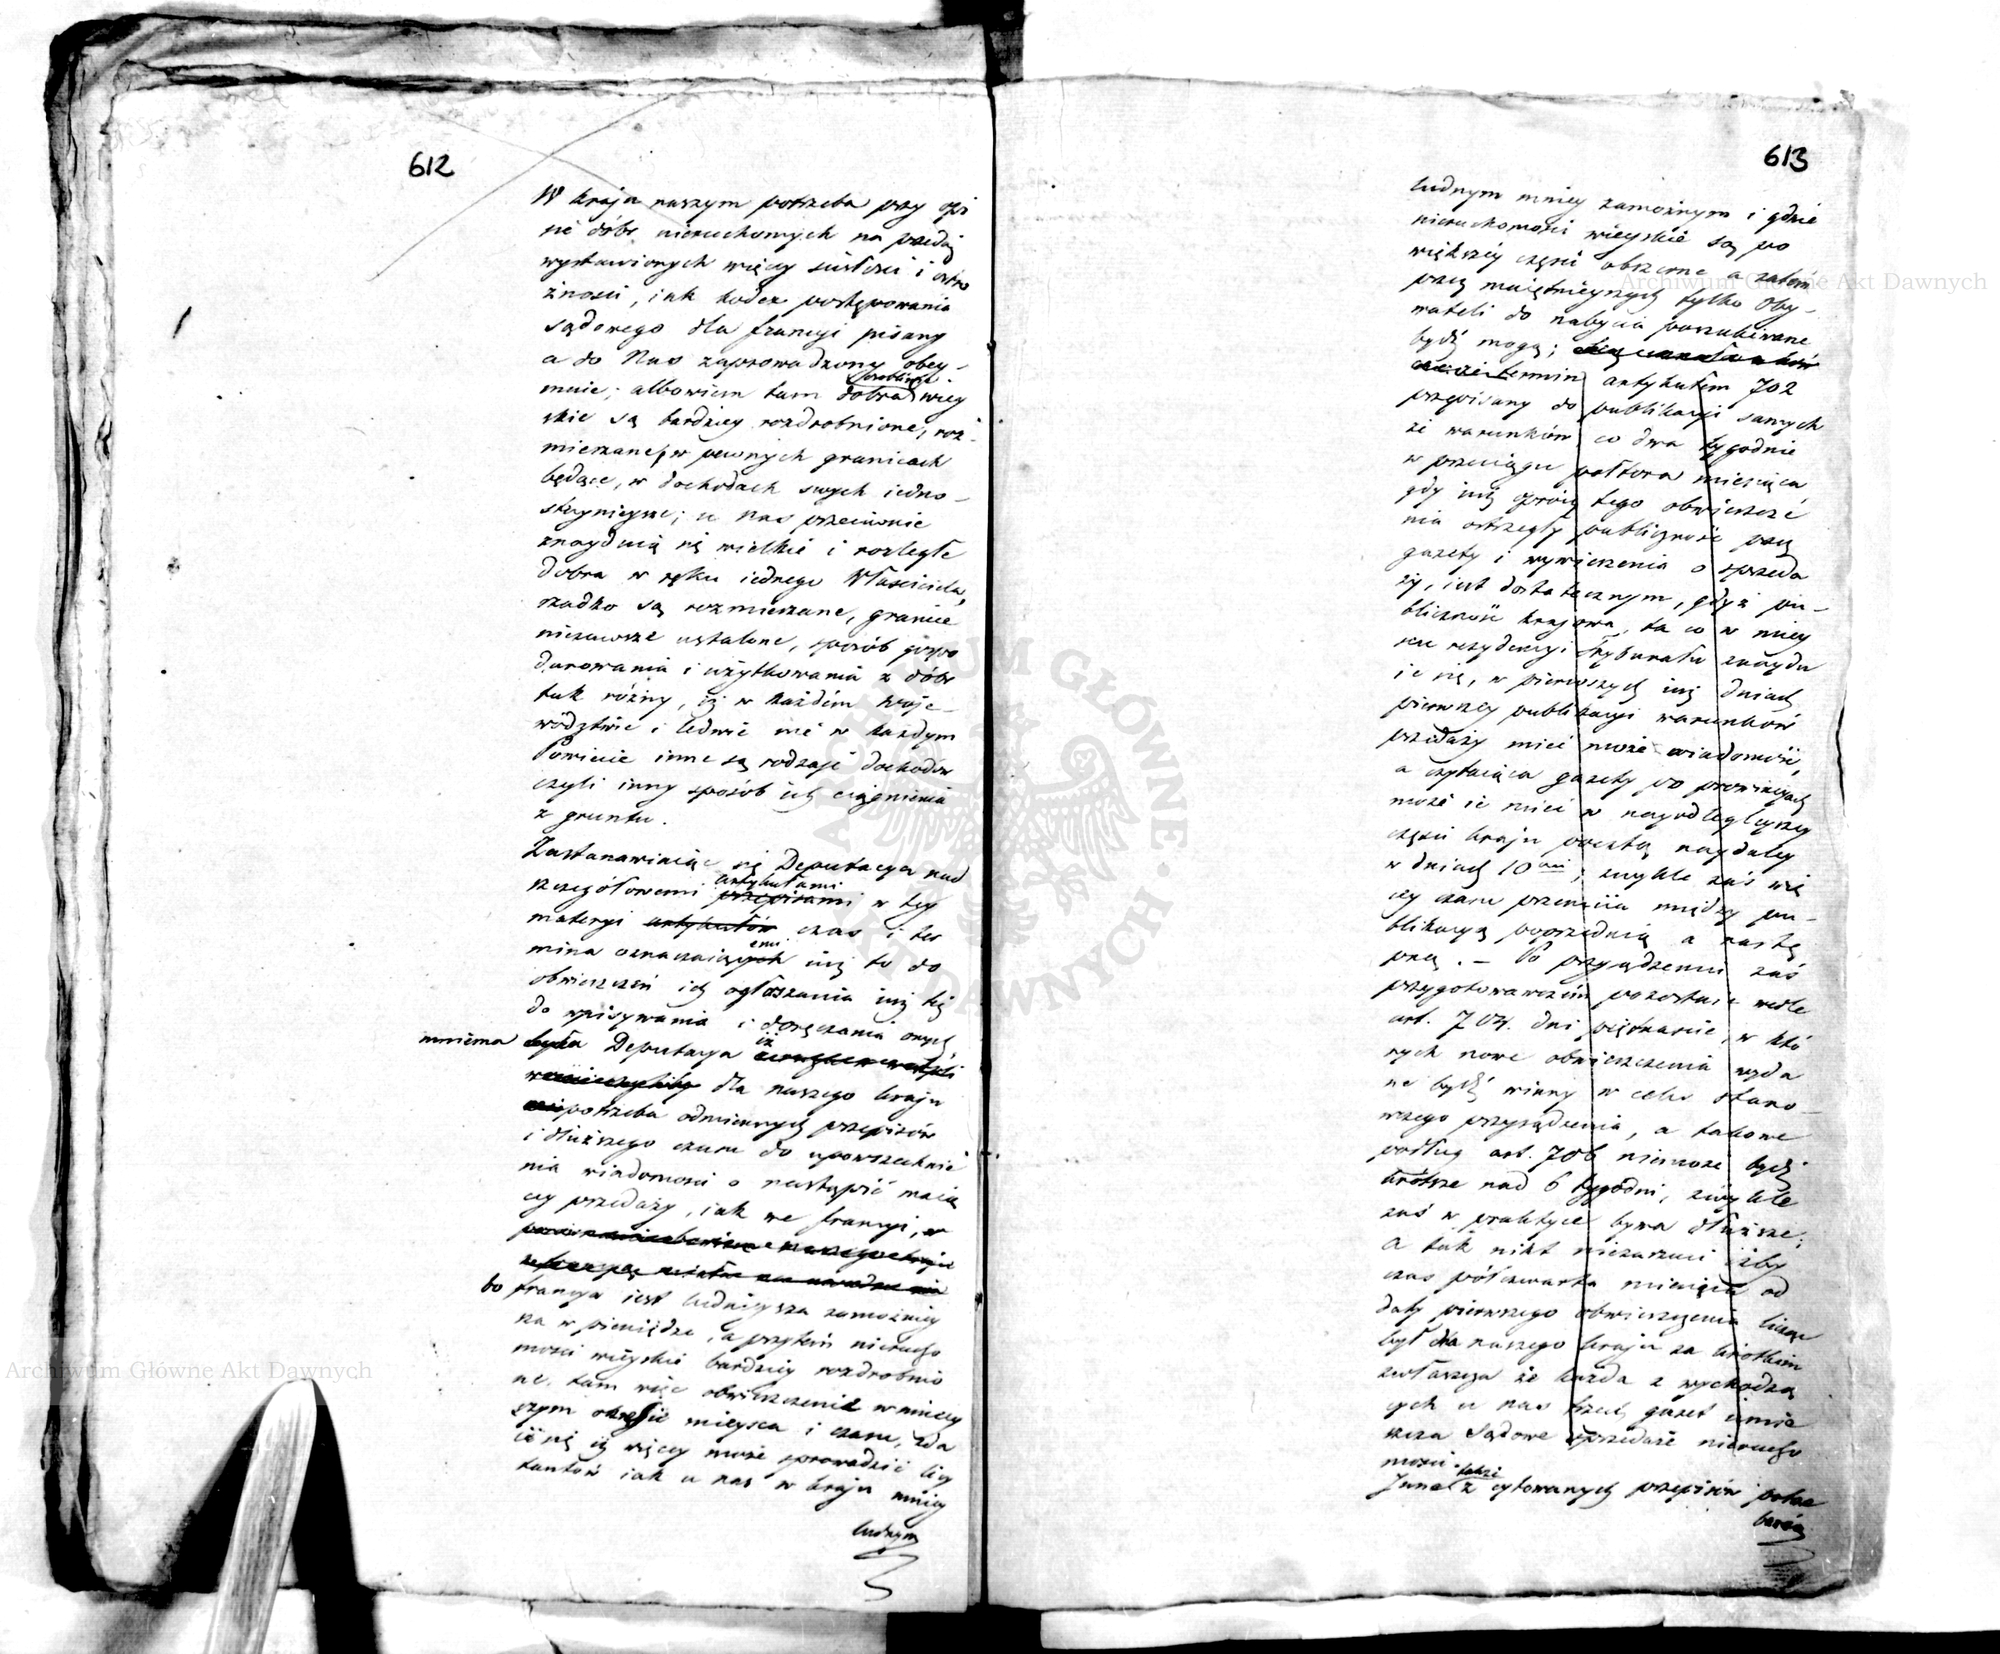 612
W kraju naszym potrzeba przy opi
sie dóbr nieruchomych na przedaż
wystawionych więcey ścisłości i ostro
żności, jak kodex postępowania
sądowego dla francyi pisany
a do Nas zaprowadzony obey-
muie; albowiem tam dobra wiey
skie są bardziey rozdrobnione, roz-
mierzane, w pewnych granicach
będące, w dochodach swych iedno-
staynieysze; u nas przeciwnie
znayduią się wielkie i rozległe
dobra w ręku iednego Właściciela,
rzadko są rozmierzane, granice
niezawsze ustalone, sposób gospo
darowania i użytkowania z dóbr
tak różny, iż w każdém Woje-
wództwie i ledwie nie w każdym
Powiecie inne są rodzaje dochodów
czyli inny sposób ich ciągnienia
z gruntu.
Zastanawiaiąc się Deputacya nad
szczegółowemi artykułami
przepisami w tey
materyi artykułów czas i ter
mina oznaczaiącemi iuż to do
obwieszczeń ich ogłoszania iuż też
do wpisywania i doręczania onych
mniema była Deputacya iż
dla naszego kraju
potrzeba odmiennych przepisów
i dłuższego czasu do upowszechnie
nia wiadomości o nastąpić maią
cey przedaży, iak we francyi,
bo francya iest ludnieysza zamożniey
sza w pieniądze, a przytém nierucho
mości wieyskie bardziey rozdrobnio
ne. tam więc obwieszczenie w mniey
szym okręgu mieysca i czasu, zda
ie się iż więcey może sprowadzić licy
tantów iak u nas w kraju mniey
ludnym
613
ludnym mniey zamożnym i gdzie
nieruchomości wieyskie są po
większéy części obszerne a zatém
przez maiętnieyszych tylko Oby-
wateli do nabycia poszukiwane
bydź mogą;
termin artykułem 702
przepisany do publikacyi samych
że warunków co dwa tygodnie
w przeciągu półtora miesiąca
gdy iuż oprócz tego obwieszcze
nia ostrzegły publiczność przez
gazety i wywieszenia o sprzeda
ży, iest dostatecznym, gdyż pu-
bliczność krajowa, ta co w miey
scu rezydencyi Trybunału znaydu
ie się, w pierwszych iuż dniach
pierwszey publikacyi warunków
przedaży mieć może wiadomość,
a czytaiąca gazety po prowincyach
może ie mieć w nayodlegleyszey
części kraju pocztą naydaley
w dniach 10ciu; zwykle zaś wię
cey czasu przemiia między pu-
blikacyą poprzednią a nastę
pną. – Po przysądzeniu zaś
przygotowawczém pozostaie wedle
art. 704. dni piętnaście, w któ
rych nowe obwieszczenia wyda
ne bydź winny w celu stano-
wczego przysądzenia, a takowe
podług art. 706 niemoże bydź
krótsze nad 6 tygodni, zwykle
zaś w praktyce bywa dłuższe;
a tak nikt niezarzuci iżby
czas półczwarta miesiąca od
daty pierwszego obwieszczenia licząc
był dla naszego kraju za krótkim
zwłaszcza że każda z wychodzą
cych u nas trzech gazet umie
szcza Sądowe sprzedaże nierucho
mości.
Inne także z cytowanych przepisów potrze
buią
ARCHIWUM GŁÓWNE AKT DAWNYCH
Archiwum Główne Akt Dawnych
Archiwum Główne Akt Dawnych